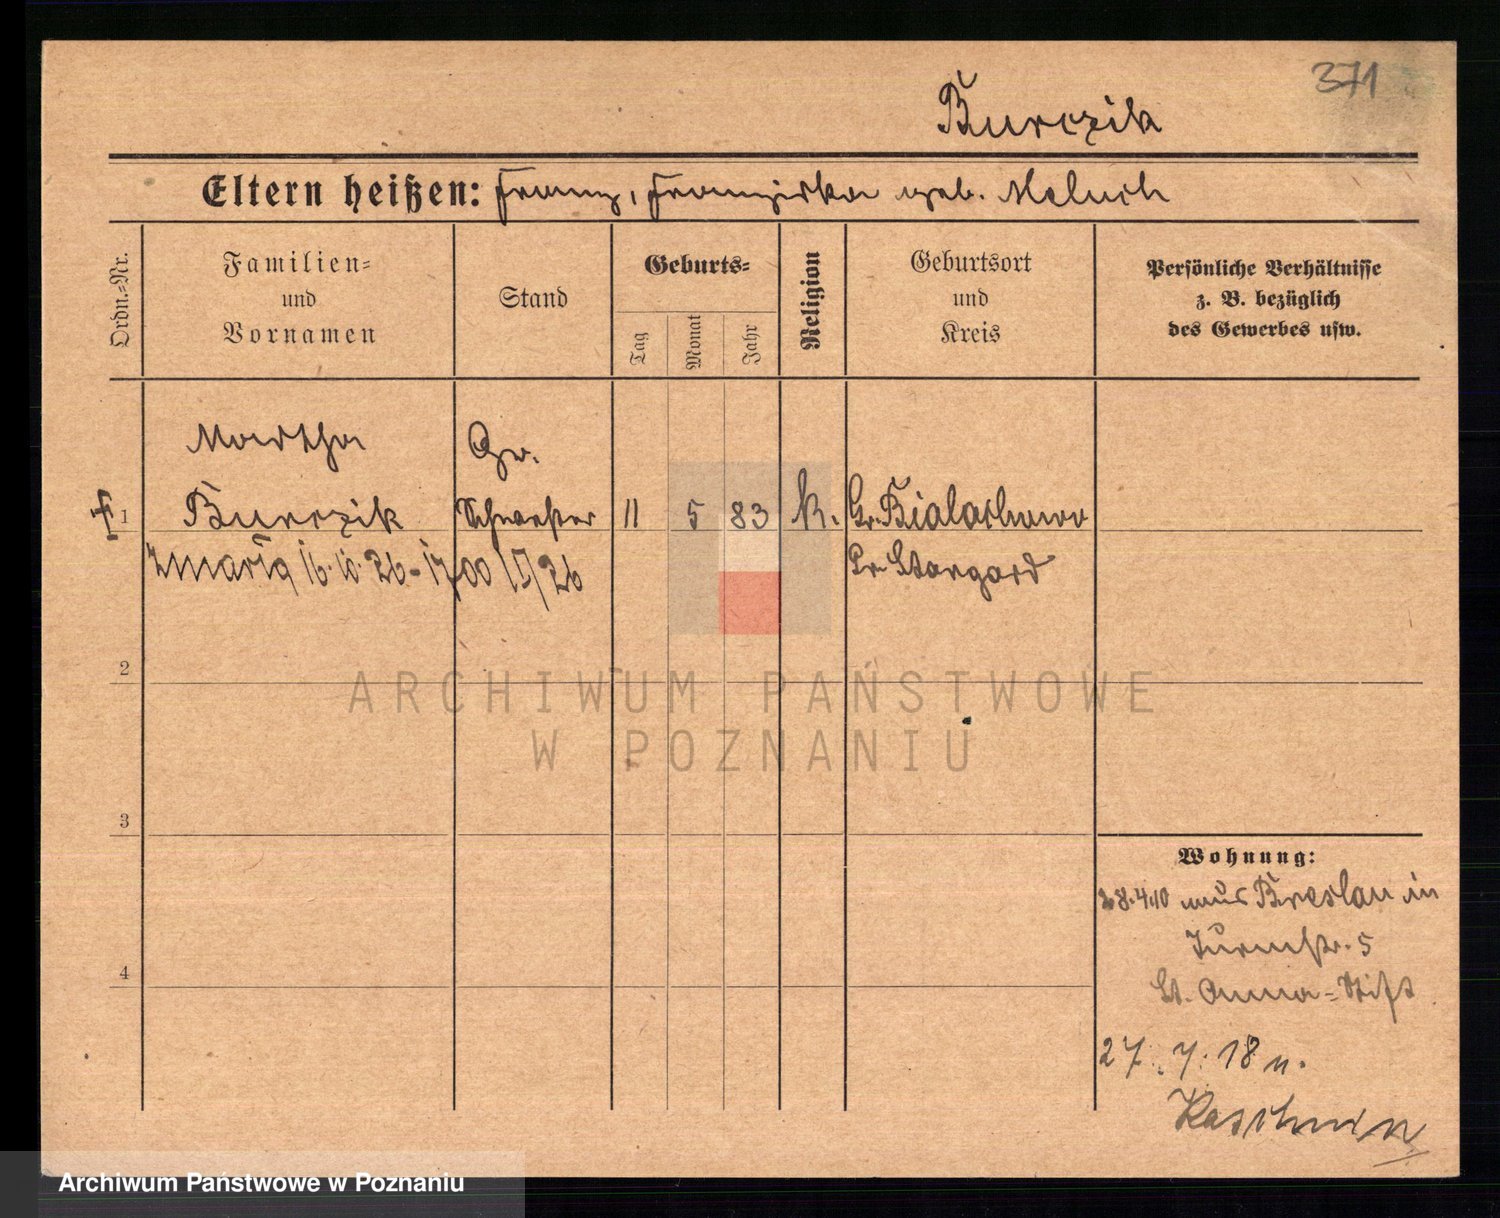 371
Burczik
Eltern heißen: Franz, Franziska geb. Maluch
Ordn.-Nr.
Familien-
und
Vornamen
Stand
Geburts-
Tag
Monat
Jahr
Religion
Geburtsort
und
Kreis
Persönliche Verhältnisse
z. B. bezüglich
des Gewerbes usw.
Martha
Gr.
1
Burczik
Schwester
11
5
83
k.
Gr. Bialachowo
Zmarią 16.10.26 - 1700 /V/26
Pr. Stargard
2
ARCHIWUM PAŃSTWOWE
W POZNANIU
3
Wohnung:
28.4.10 aus Breslau in
Turmstr. 5
4
St. Anna-Stift
27.7.18 n.
Koschmin
Archiwum Państwowe w Poznaniu